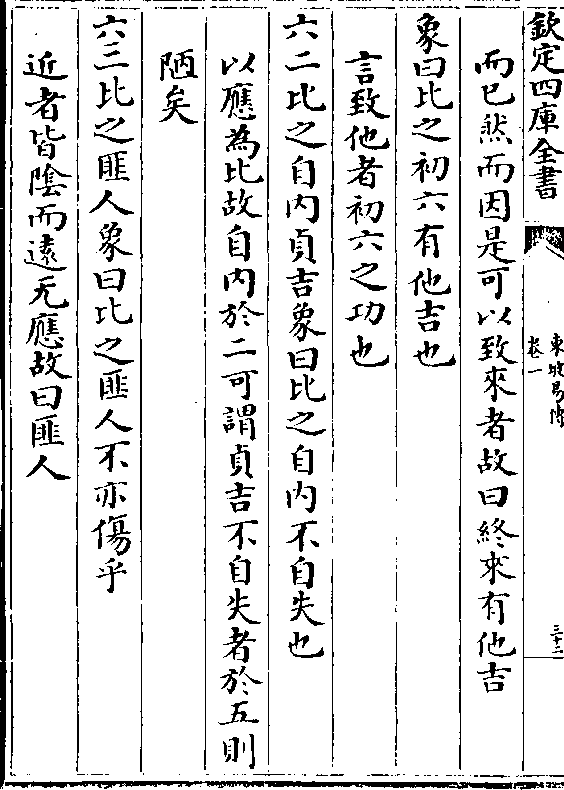 欽定四庫全書
東坡易傳
卷一
三十二
而已然而因是可以致來者故曰終來有他吉
象曰比之初六有他吉也
言致他者初六之功也
六二比之自內貞吉象曰比之自內不自失也
以應為比故自內於二可謂貞吉不自失者於五則
陋矣
六三比之匪人象曰比之匪人不亦傷乎
近者皆陰而遠无應故曰匪人